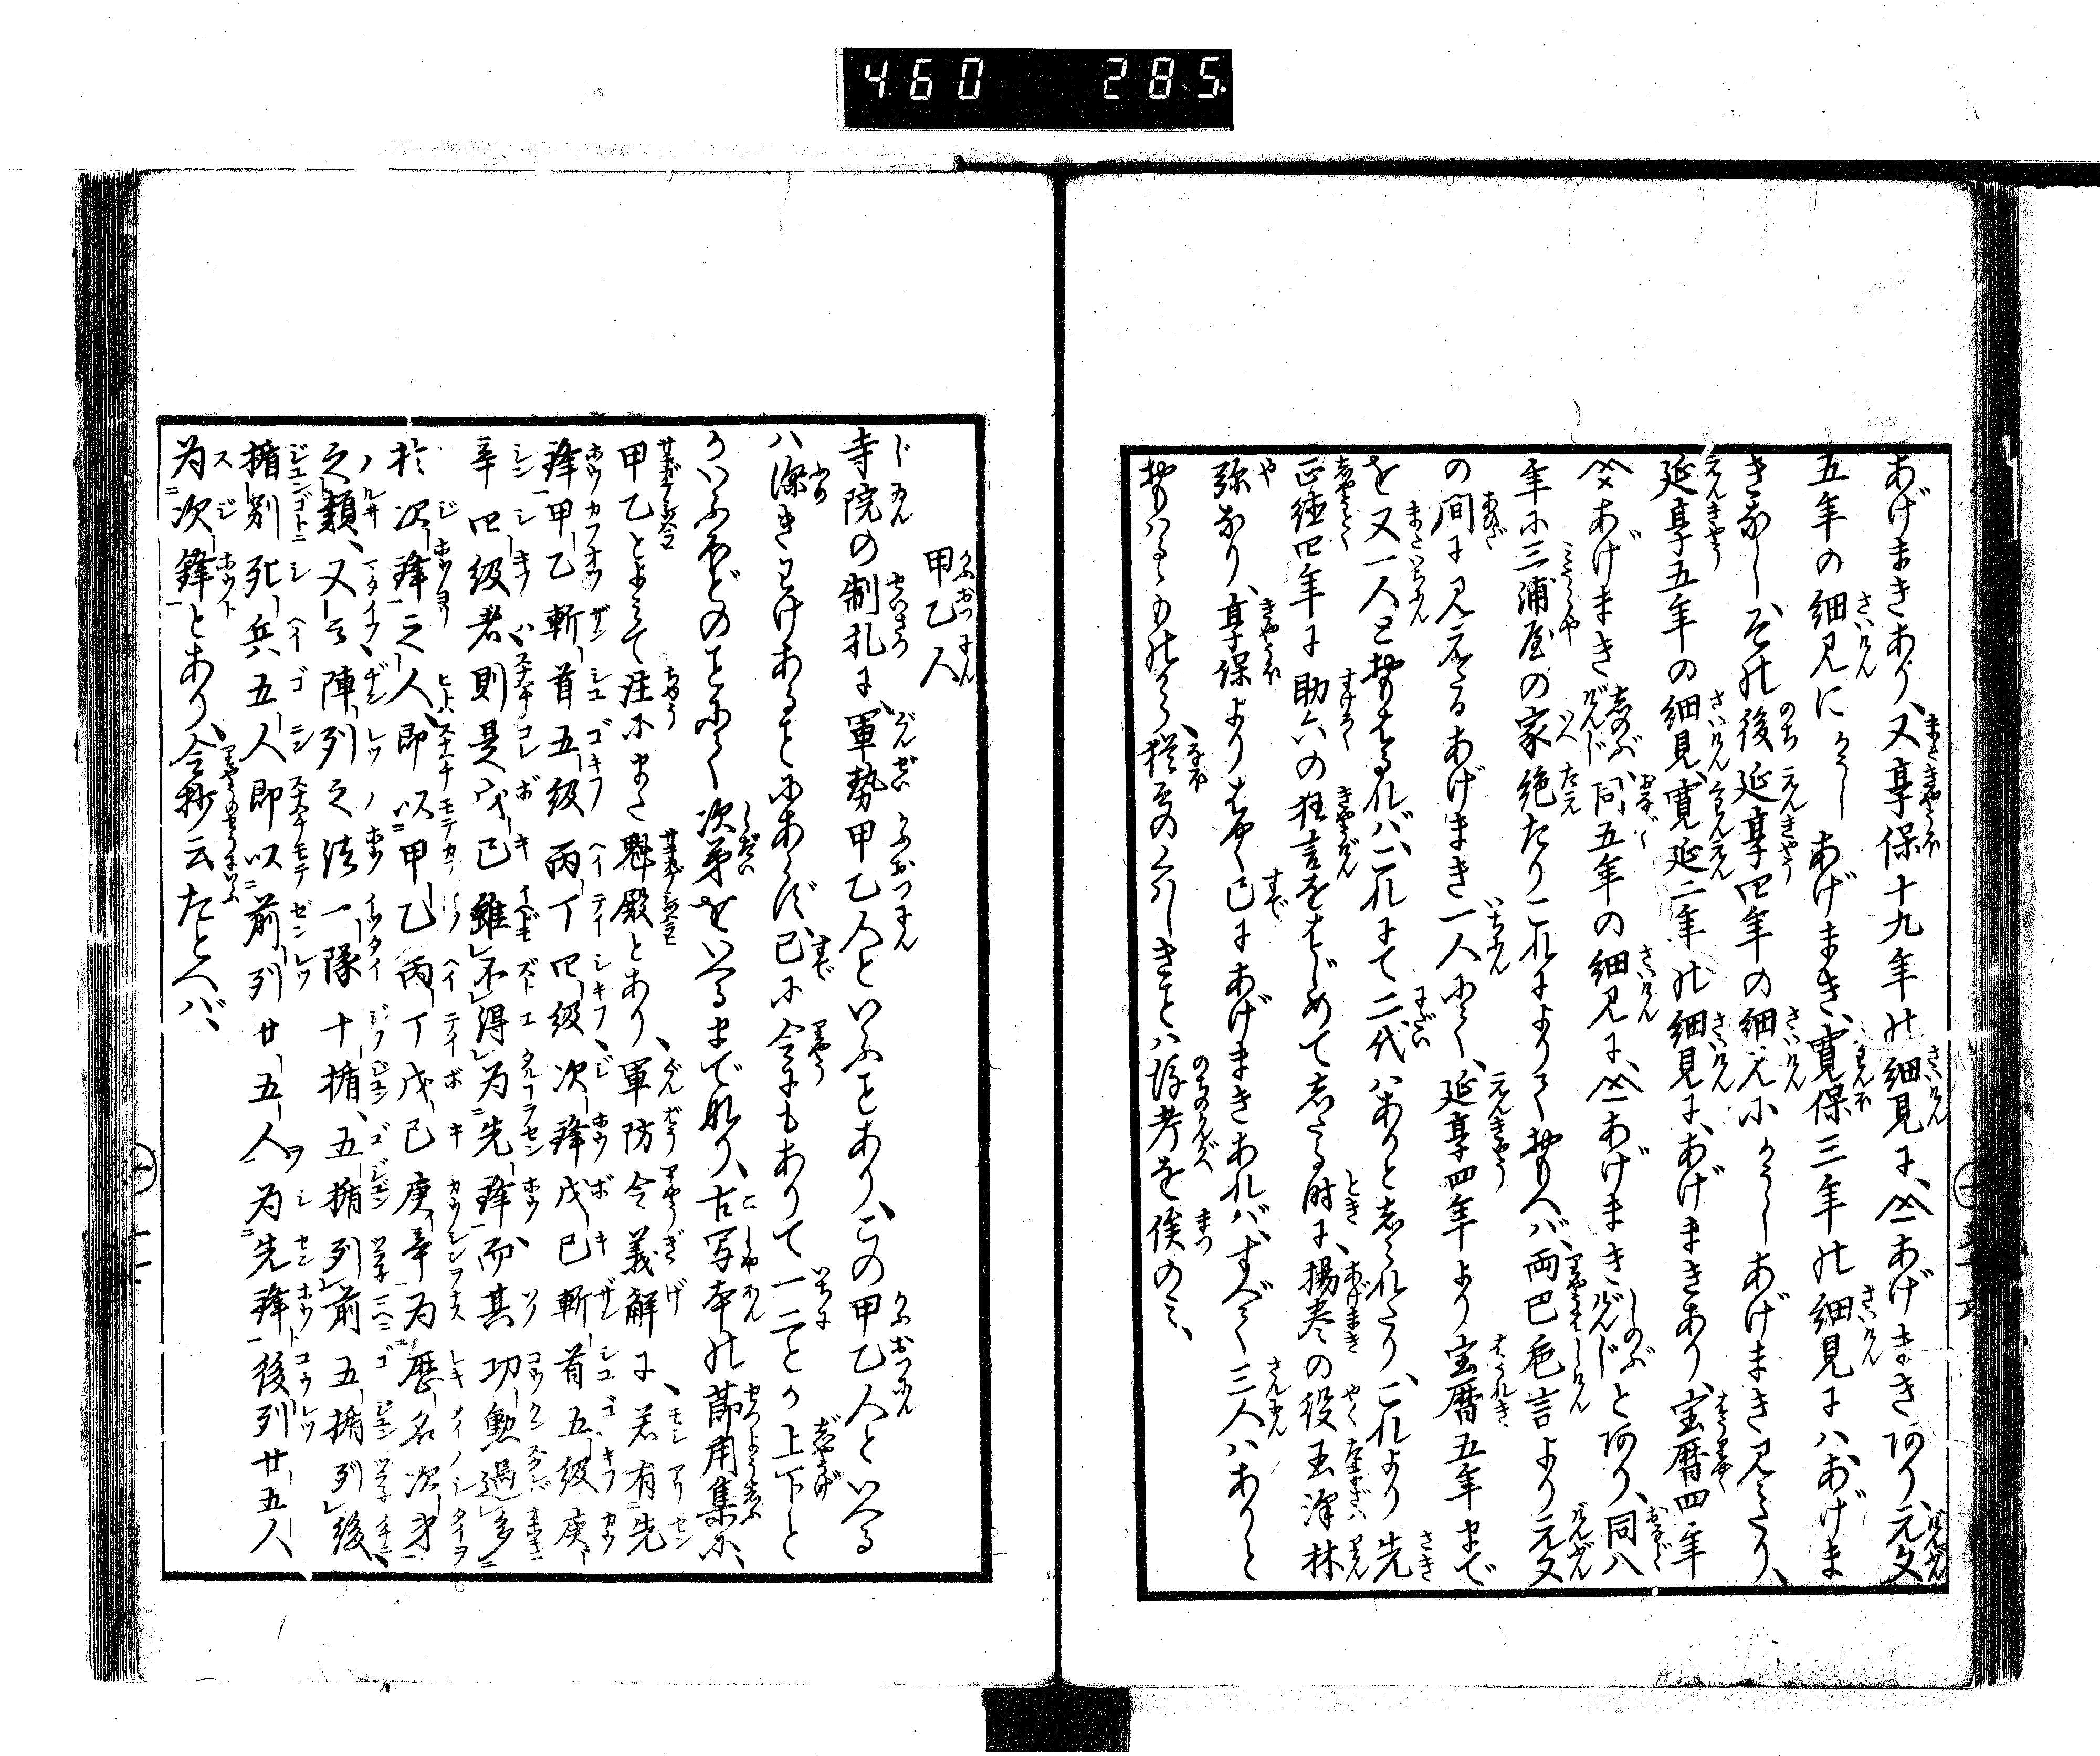 460 285.
あげまきあり、又享保十九年の細見に、〽あげまきあり、元文
五年の細見にかうしあげまき、寛保三年の細見にハあげま
きなし、その後延享四年の細見にかうしあげまき見えたり、
延享五年の細見、寛延二年の細見に、あげまきあり、宝暦四年
あげまき しのぶ げんじ、同五年の細見に、あげまき しのぶ げんじとあり、同八
年に三浦屋の家絶たりこれによりて按れバ、両巴巵言より元文
の間に見えたるあげまき一人にて、延享四年より宝暦五年まで
を又一人とおもはるれバ、これにて二代ハありとしられたり、これより先
正徳四年に助六の狂言をはじめてしたる時に、揚巻の役玉澤林
弥なり、享保よりはやく已にあげまきあれバ、すべて三人ハありと
おもハるゝものから、猶この くハしきことハ後考を俟のミ、
甲乙人
寺院の制札に、軍勢甲乙人といふことあり、この甲乙人といへる
ハ深きわけあることにあらず、已に今にもありて一二とか上下と
かいふほどのことにて次第をいへるまでなり、古写本の節用集に、
甲乙とよみて注にまた魁殿とあり、軍防令義解に、若有先
鋒甲乙斬首五級丙丁四級、次鋒戊己斬首五級庚
辛四級者則是戊己雖不得為先鋒、而其功勲過多
於次鋒之人、即以甲乙丙丁戊己庚辛為歴名次第
之類、又云陣列之法一隊十楯、五楯列前五楯列後、
楯別配兵五人即以前列廿五人為先鋒後列廿五人、
為次鋒とあり、令抄云たとへバ、